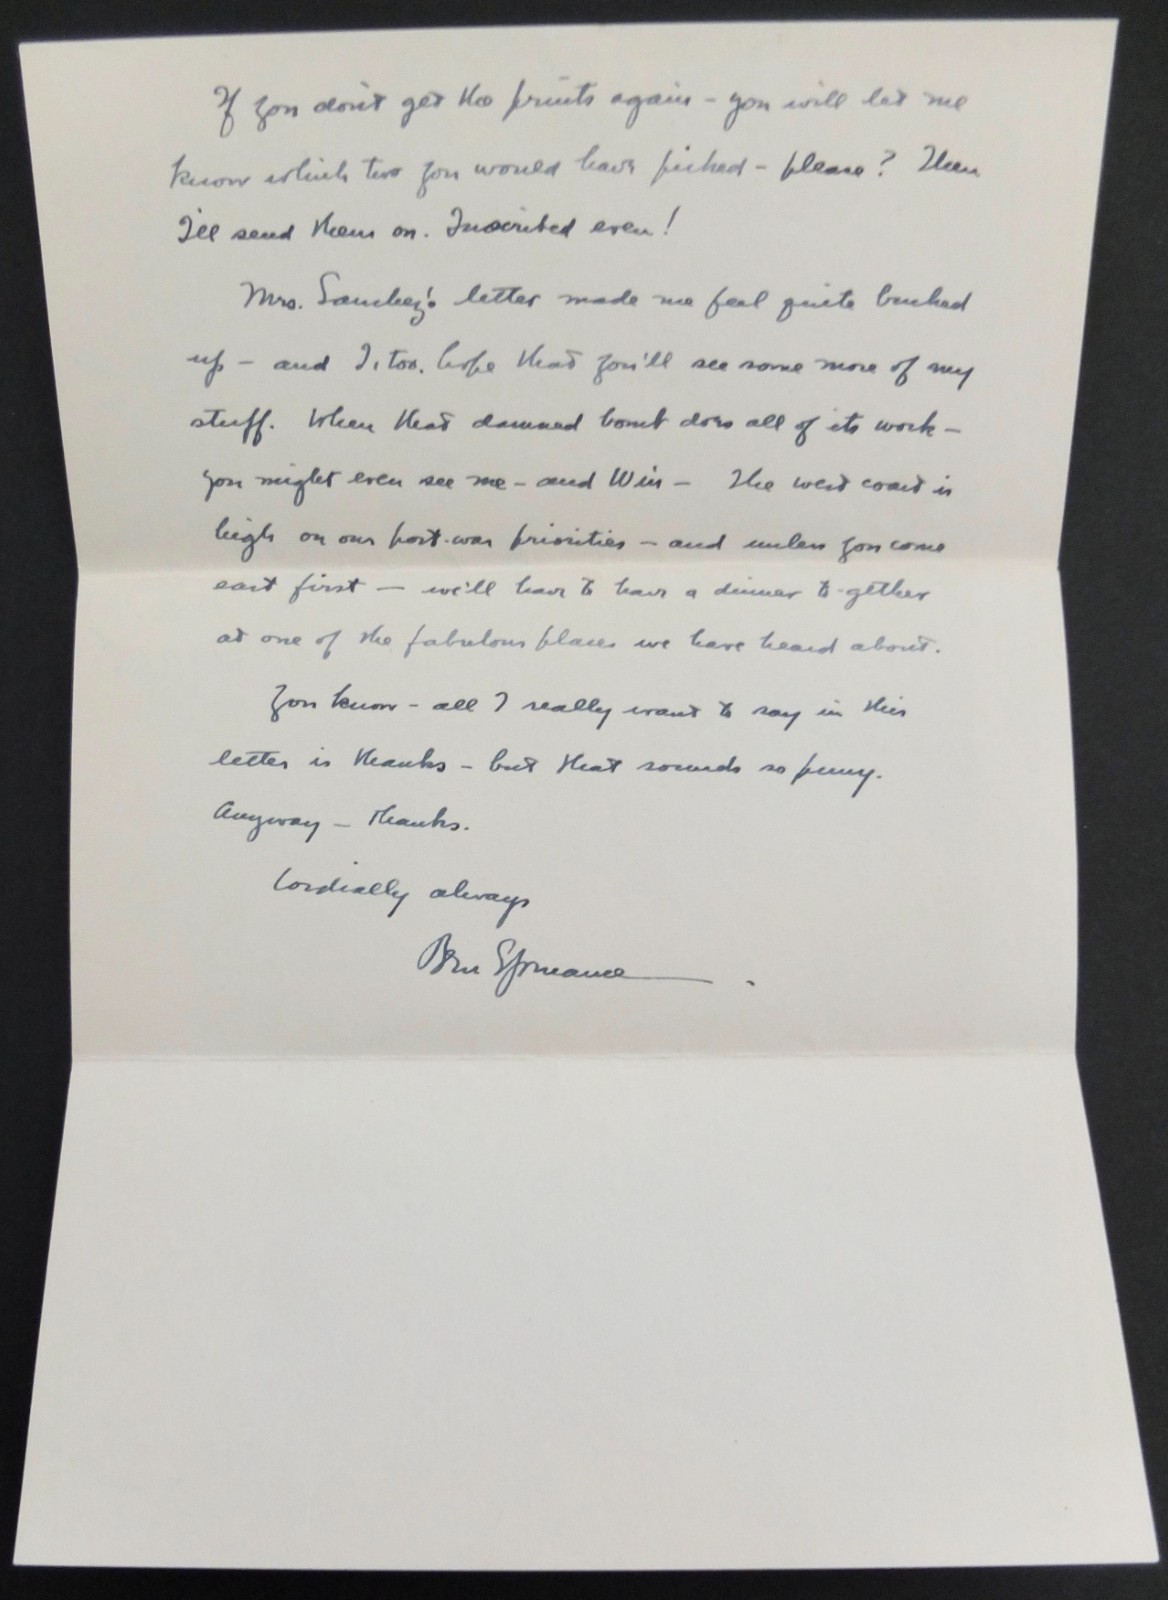 If you don't get the prints again – you will let me
know which two you would have picked – please? Then
I'll send them on. Inscribed even!
Mrs. letter made me feel quite bucked
up – and I, too, hope that you'll see some more of my
stuff. When that damned bomb does all of its work –
you might even see me – and Win – The west coast is
high on our post-war priorities – and unless you come
east first – we'll have to have a dinner to-gether
at one of the fabulous places we have heard about.
You know – all I really want to say in this
letter is thanks – but that sounds so puny.
Anyway – thanks.
Cordially always
Ben Spruance